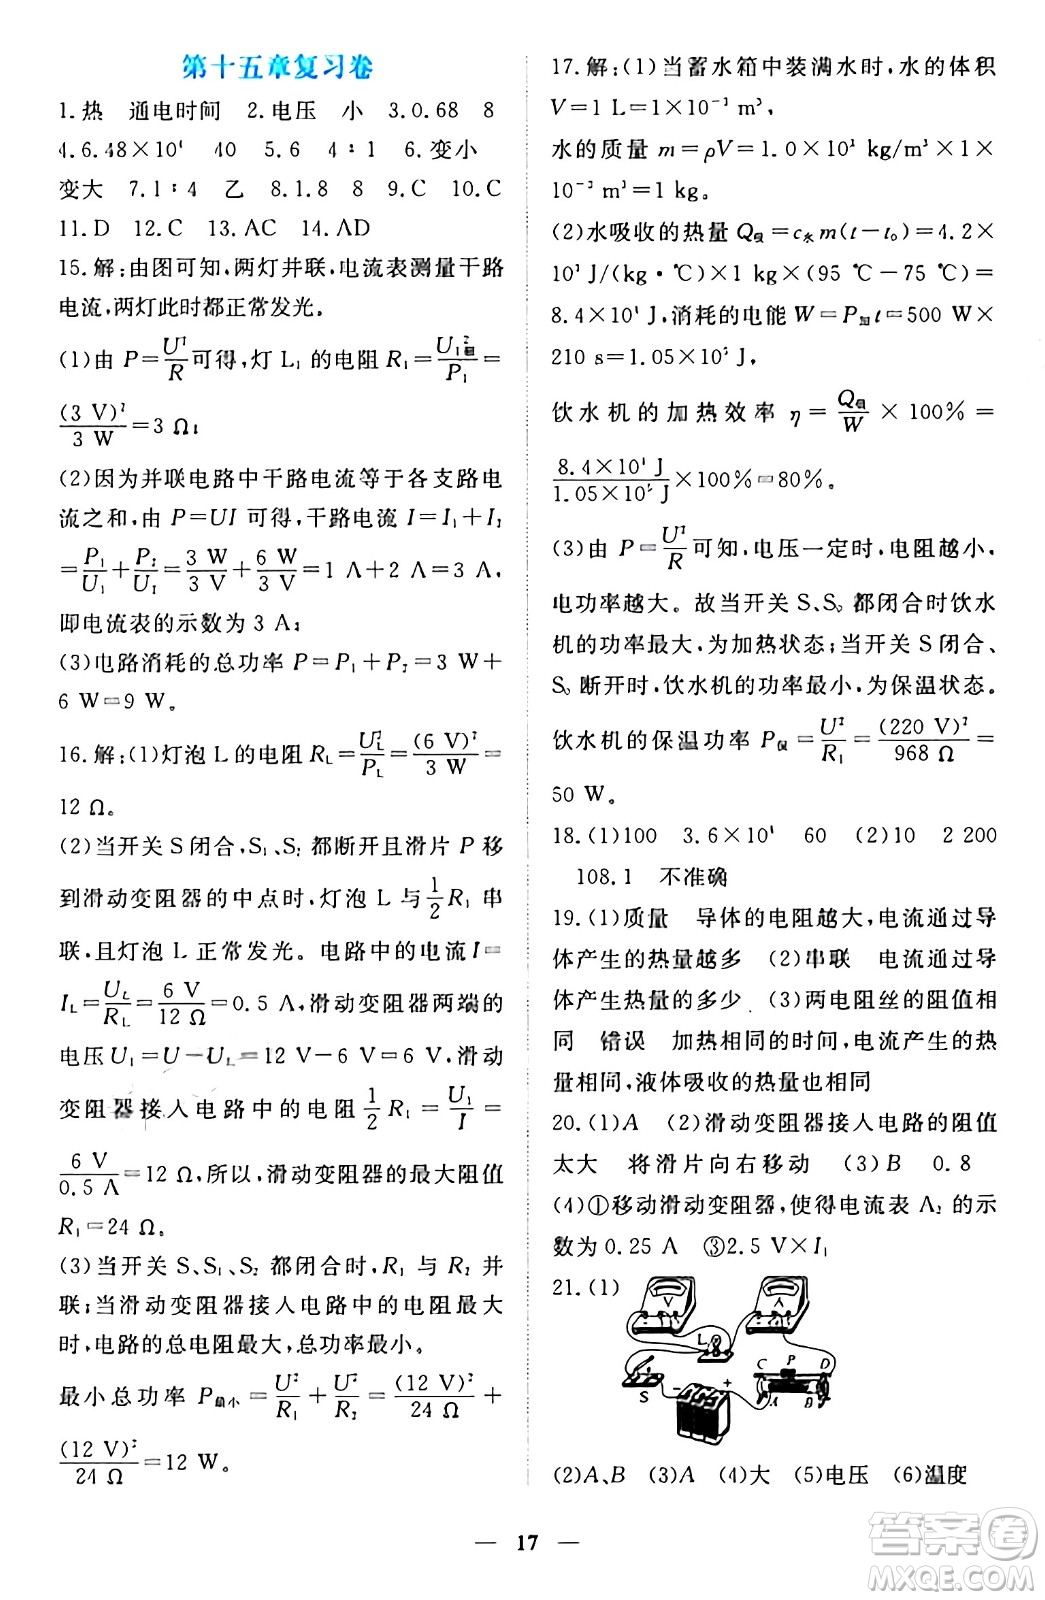 第十五章复习卷
1.热 通电时间 2.电压 小 3.0.68 8
4.6.48×10⁴ 40 5.6 4∶1 6.变小
变大 7.1∶4 乙 8.1.8 8 9.C 10.C
11.D 12.C 13.AC 14.AD
15.解:由图可知,两灯并联,电流表测量干路
电流,两灯此时都正常发光。
(1)由 P=U²/R可得,灯 L₁ 的电阻 R₁=U₁额²/P₁=
(3 V)²/3 W=3 Ω;
(2)因为并联电路中干路电流等于各支路电
流之和,由 P=UI 可得,干路电流 I=I₁+I₂
=P₁/U₁+P₂/U₂=3 W/3 V+6 W/3 V=1 A+2 A=3 A,
即电流表的示数为 3 A;
(3)电路消耗的总功率 P=P₁+P₂=3 W+
6 W=9 W。
16.解:(1)灯泡 L 的电阻 R_L=U_L²/P_L=(6 V)²/3 W=
12 Ω。
(2)当开关 S 闭合,S₁、S₂ 都断开且滑片 P 移
到滑动变阻器的中点时,灯泡 L 与1/2R₁ 串
联,且灯泡 L 正常发光。电路中的电流 I=
I_L=U_L/R_L=6 V/12 Ω=0.5 A,滑动变阻器两端的
电压 U₁=U-U_L=12 V-6 V=6 V,滑动
变阻器接入电路中的电阻1/2R₁=U₁/I=
6 V/0.5 A=12 Ω,所以,滑动变阻器的最大阻值
R₁=24 Ω。
(3)当开关 S、S₁、S₂ 都闭合时,R₁ 与 R₂ 并
联;当滑动变阻器接入电路中的电阻最大
时,电路的总电阻最大,总功率最小。
最小总功率 P最小=U²/R₁+U²/R₂=(12 V)²/24 Ω+
(12 V)²/24 Ω=12 W。
17.解:(1)当蓄水箱中装满水时,水的体积
V=1 L=1×10⁻³ m³,
水的质量 m=ρV=1.0×10³ kg/m³×1×
10⁻³ m³=1 kg。
(2)水吸收的热量 Q吸=c水m(t-t₀)=4.2×
10³ J/(kg·℃)×1 kg×(95 ℃-75 ℃)=
8.4×10⁴ J,消耗的电能 W=P加t=500 W×
210 s=1.05×10⁵ J,
饮水机的加热效率 η=Q吸/W×100%=
8.4×10⁴ J/1.05×10⁵ J×100%=80%。
(3)由 P=U²/R可知,电压一定时,电阻越小,
电功率越大。故当开关 S、S₀ 都闭合时饮水
机的功率最大,为加热状态;当开关 S 闭合、
S₀ 断开时,饮水机的功率最小,为保温状态。
饮水机的保温功率 P保=U²/R₁=(220 V)²/968 Ω=
50 W。
18.(1)100 3.6×10⁴ 60 (2)10 2 200
108.1 不准确
19.(1)质量 导体的电阻越大,电流通过导
体产生的热量越多 (2)串联 电流通过导
体产生热量的多少 (3)两电阻丝的阻值相
同 错误 加热相同的时间,电流产生的热
量相同,液体吸收的热量也相同
20.(1)A (2)滑动变阻器接入电路的阻值
太大 将滑片向右移动 (3)B 0.8
(4)①移动滑动变阻器,使得电流表 A₂ 的示
数为 0.25 A ③2.5 V×I₁
21.(1)
V A
L
S
- +
C P D
A B
(2)A、B (3)A (4)大 (5)电压 (6)温度
— 17 —
答案圈
MXQE.COM